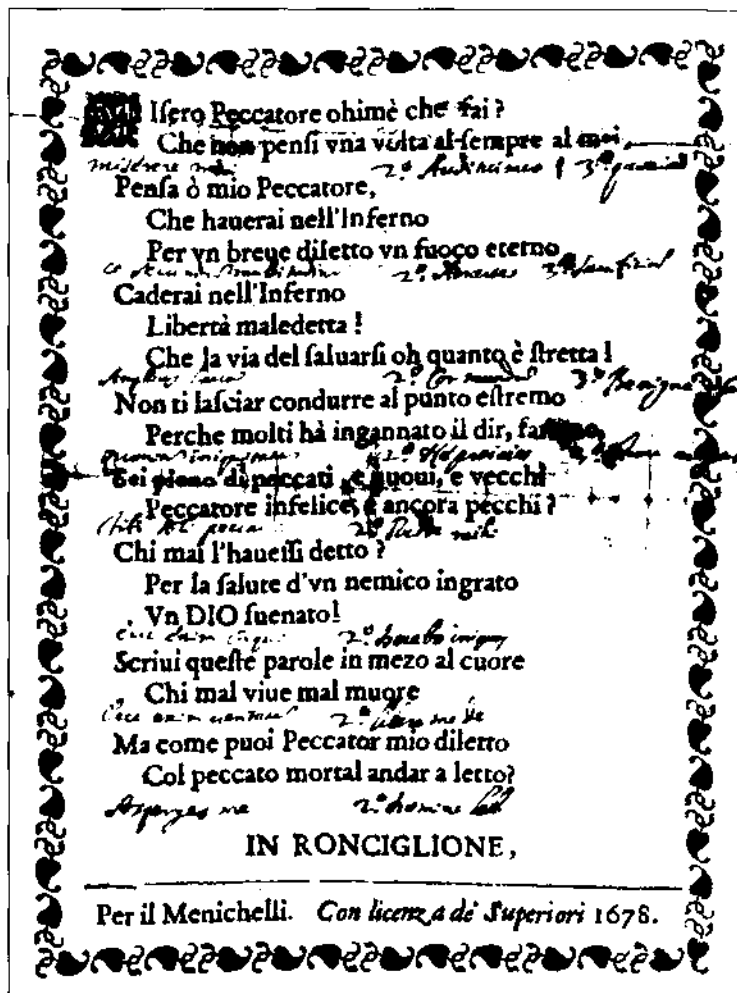 Iſero Peccatore ohimè che fai?
Che non penſi vna volta al ſempre al mai,
miserere mei 2.º Audinimus 3.º
Penſa ò mio Peccatore,
Che hauerai nell'Inferno
Per vn breue diletto vn fuoco eterno
2.º 3.º
Caderai nell'Inferno
Libertà maledetta!
Che la via del ſaluarſi oh quanto è ſtretta!
Amplius 2.º Cor mundum 3.º Benigne
Non ti laſciar condurre al punto eſtremo
Perche molti hà ingannato il dir,
Quoniam 2.º
Sei pieno di peccati, e nuoui, e vecchi
Peccatore infelice, e ancora pecchi?
Tibi 2.º
Chi mai l'haueſſi detto?
Per la ſalute d'vn nemico ingrato
Vn DIO ſuenato!
Ecce enim 2.º
Scriui queſte parole in mezo al cuore
Chi mal viue mal muore
Ecce enim 2.º libera me de
Ma come puoi Peccator mio diletto
Col peccato mortal andar a letto?
Asperges me 2.º Domine
IN RONCIGLIONE,
Per il Menichelli. Con licenza de' Superiori 1678.